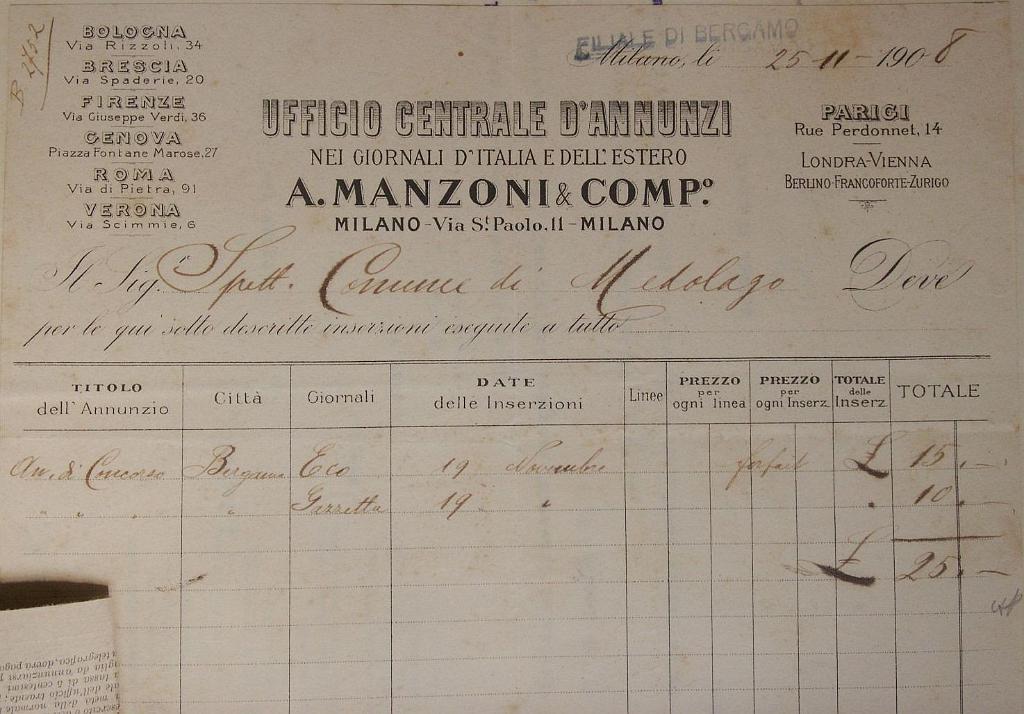 B 2752
BOLOGNA
Via Rizzoli, 34
BRESCIA
Via Spaderie, 20
FIRENZE
Via Giuseppe Verdi, 36
GENOVA
Piazza Fontane Marose, 27
ROMA
Via di Pietra, 91
VERONA
Via Scimmie, 6
FILIALE DI BERGAMO
Milano, li 25-11-1908
UFFICIO CENTRALE D'ANNUNZI
NEI GIORNALI D'ITALIA E DELL'ESTERO
A. MANZONI & COMP.º
MILANO - Via S.t Paolo, 11 - MILANO
PARIGI
Rue Perdonnet, 14
LONDRA-VIENNA
BERLINO-FRANCOFORTE-ZURIGO
Il Sig.r Spett. Comune di Medolago Deve
per le qui sotto descritte inserzioni eseguite a tutto
TITOLO dell'Annunzio Città Giornali DATE delle Inserzioni Linee PREZZO per ogni linea PREZZO per ogni Inserz. TOTALE delle Inserz. TOTALE
Av. di Concorso Bergamo Eco 19 Novembre forfait £ 15.—
" " " " Gazzetta 19 " " 10.—
£ 25.—
telegrafica, dovrà paga
glio da annunziarsi
a tassa di 5 centesimi
le dell'ufficio traente;
metà della